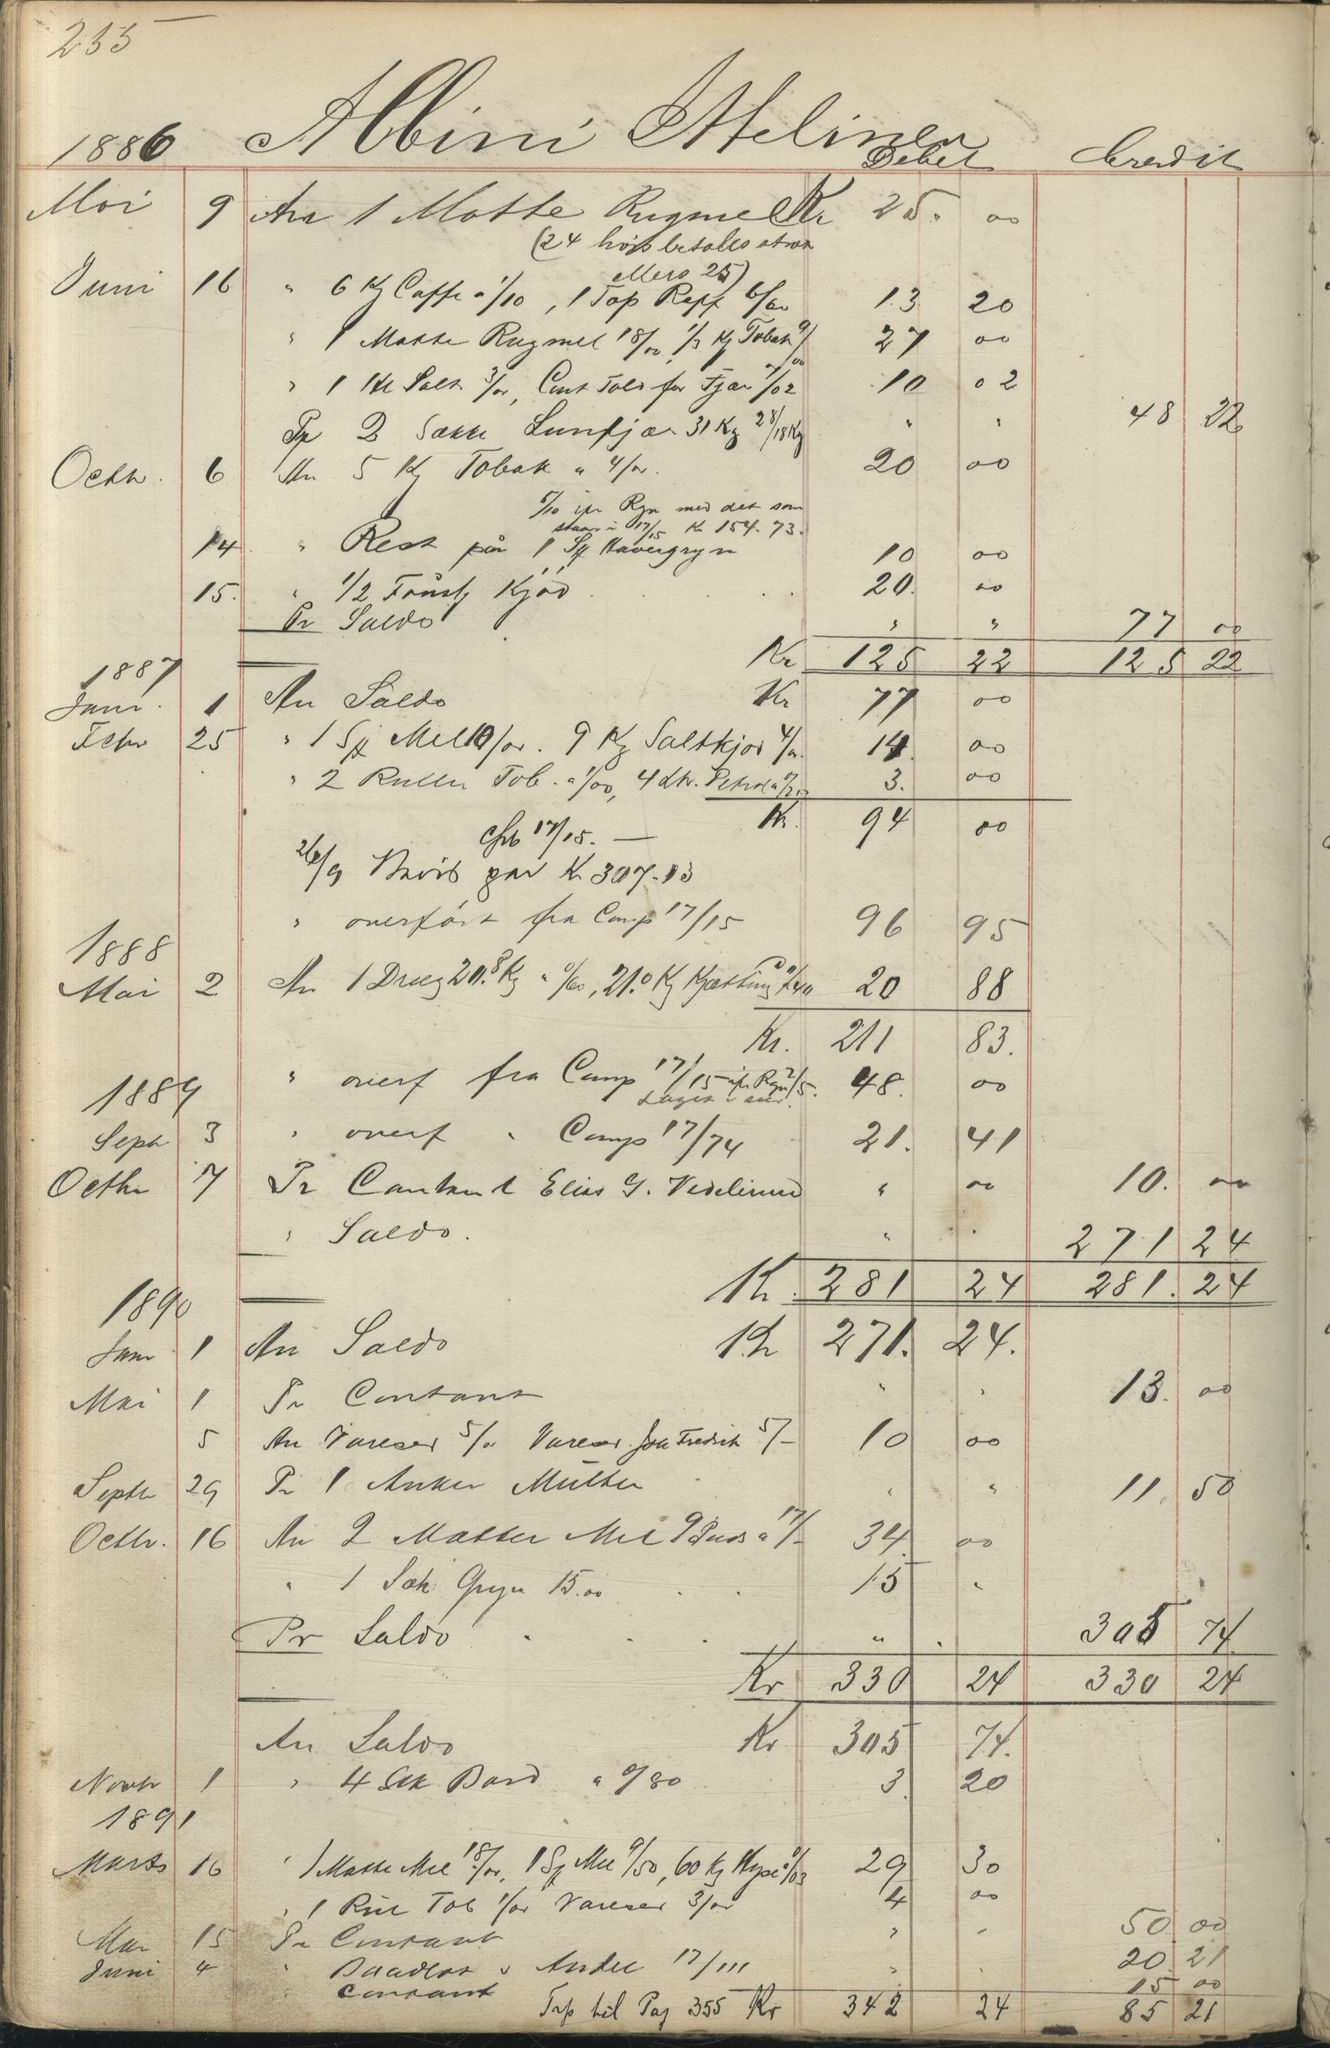 235
1886 Albini Meliner
Debet Credit
Mai 9 An 1 Matte Rugmel Kr 25. 00
(24 hvis betales strax
Mers 25)
Juni 16 " 6 Kg Caffe a 1/10, 1 Tap Repp 6/60 13 20
" 1 Matte Rugmel 18/00 1/2 Kg Tobak 9/00 27 00
" 1 Hl Salt 3/00, Cont Told for Fjær 7/02 10 02
Pr 2 Sække Lunfjær 31 Kg 28/18 Kg " " 48 22
Octbr. 6 An 5 Kg Tobak a 4/00. 20 00
7/10 ifr Rgn med det som
staar i 17/15 Kr 154.73.
14 " Rest på 1 Sk Havergryn 10 00
15. " 1/2 Kjød 20. 00
Pr Saldo " " 77 00
Kr 125 22 125 22
1887
Janr. 1 An Saldo Kr 77 00
Febr 25 " 1 Sk Mel 10/00. 9 Kg Saltkjød 4/00. 14 00
" 2 Ruller Tob. a 1/00, 4 Ltr. Petrol a 3. 00
Kr. 94 00
17/15. —
26/9 Kr 307-13
" overført fra Comp 17/15 96 95
1888
Mai 2 An 1 Dræg 20.8 Kg a 0/60, 21.0 Kg Kjætting a 0/40 20 88
Kr. 211 83.
" overf fra Comp 17/15 ifr Rgn 2/5. 48. 00
1889
Septr 3 " overf " Comp 17/74 21. 41
Octbr 7 Pr Contant Elias G. " 00 10. 00
" Saldo. " . 271 24
Kr. 281 24 281. 24
1890
Janr 1 An Saldo Kr 271. 24.
Mai 1 Pr Contant " " 13. 00
5 An Vareser 5/00 Vareser fra Fredrik 5/- 10 00
Septbr 29 Pr 1 Anker Mülter " " 11. 50
Octbr. 16 An 2 Matter Mel 9 Puds a 17/- 34. 00
" 1 Sæk Gryn 15.00 . . 15 "
Pr Saldo . . . " . 305 74
Kr 330 24 330 24
An Saldo Kr 305 74.
Novbr 1 " 4 Stk Bord a 0/80 3. 20
1891
Marts 16 " 1 Matte Mel 18/00, 1 Sk Mel 9/50, 60 Kg 0/03 29 30
" 1 Rul Tob 1/00 Vareser 3/00 4 00
Mai 15 Pr Contant " " 50 00
Juni 4 " Andel 17/111 " . 20. 21
" Contant 15 00
Trp til Pag 355 Kr 342 24 85 21